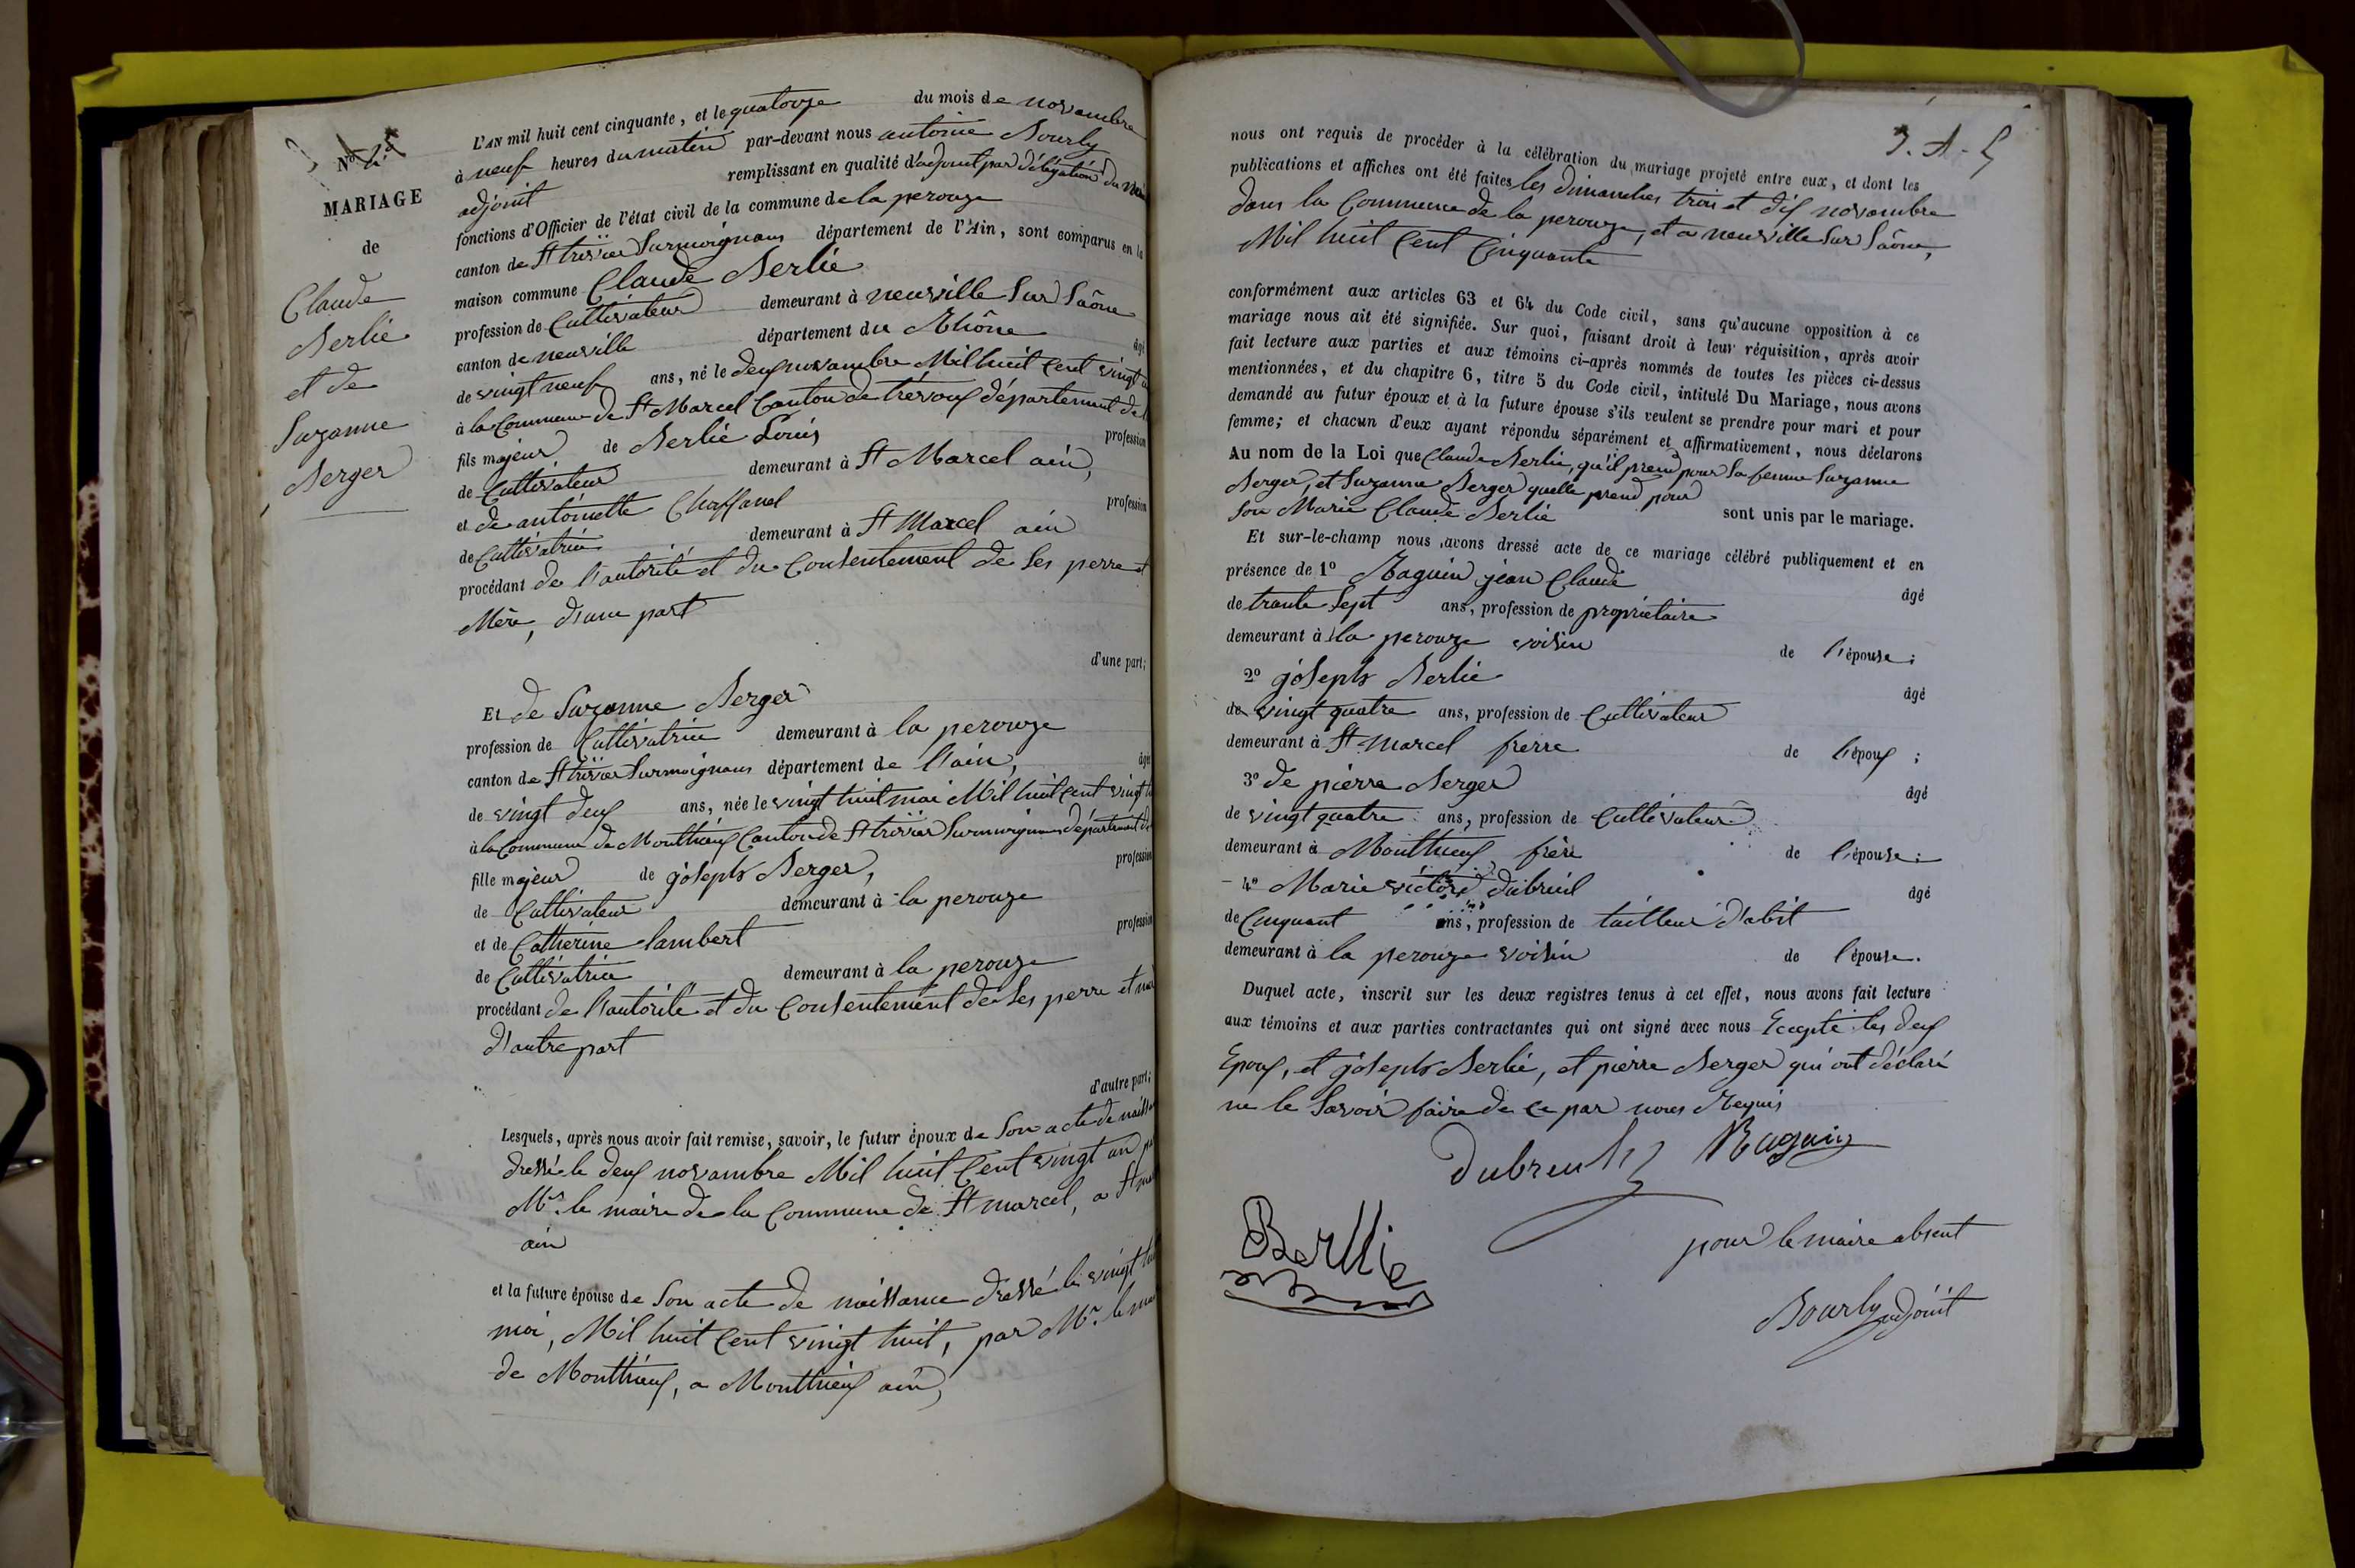 N.º 4
MARIAGE
de
Claude
Berlié
et de
Suzanne
Berger
L'AN mil huit cent cinquante, et le quatorze du mois de novambre
à neuf heures du matin par-devant nous antoine Bourly
adjoint remplissant en qualité d'adjoint par délégation du
fonctions d'Officier de l'état civil de la commune de la perouze
canton de St trivier Surmoignans département de l'Ain, sont comparus en la
maison commune Claude Berlié
profession de Cultivateur demeurant à neuville Sur Saône
canton de neuville département du Rhône âgé
de vingt neuf ans, né le deux novambre Mil huit Cent vingt
à la Commune de St Marcel Canton de trévoux département de
fils majeur de Berlié Louis profession
de Cultivateur demeurant à St Marcel ain,
et de antoinette Chaffanel profession
de Cultivatrice demeurant à St Marcel ain
procédant de l'autorité et du Consentement de Ses perre et
Mère, d'une part
d'une part;
Et de Suzanne Berger
profession de Cultivatrice demeurant à la perouze
canton de St trivier Surmoignans département de l'ain, âgée
de vingt deux ans, née le vingt huit mai Mil huit Cent vingt
à la Commune de Monthieux Canton de St trivier Surmoignans département de
fille majeur de joseph Berger, profession
de Cultivateur demeurant à la perouze
et de Catherine lambert profession
de Cultivatrice demeurant à la perouze
procédant de l'autorité et du Consentement de Ses perre et
d'autre part
d'autre part;
Lesquels, après nous avoir fait remise, savoir, le futur époux de Son acte de
dressé le deux novambre Mil huit Cent vingt un
Mr. le maire de la Commune de St marcel, a St
ain
et la future épouse de Son acte de naissance dressé le vingt
mai, Mil huit Cent vingt huit, par Mr. le
de Monthieux, a Monthieux ain,
nous ont requis de procéder à la célébration du mariage projeté entre eux, et dont les
publications et affiches ont été faites les dimanches trois et dix novambre
dans la Commune de la perouze, et a neuville Sur Saône,
Mil huit Cent Cinquante
conformément aux articles 63 et 64 du Code civil, sans qu'aucune opposition à ce
mariage nous ait été signifiée. Sur quoi, faisant droit à leur réquisition, après avoir
fait lecture aux parties et aux témoins ci-après nommés de toutes les pièces ci-dessus
mentionnées, et du chapitre 6, titre 5 du Code civil, intitulé Du Mariage, nous avons
demandé au futur époux et à la future épouse s'ils veulent se prendre pour mari et pour
femme; et chacun d'eux ayant répondu séparément et affirmativement, nous déclarons
Au nom de la Loi que Claude Berlié, qu'il prend pour Sa femme Suzanne
Berger, et Suzanne Berger quelle prend pour
Son Marie Claude Berlié sont unis par le mariage.
Et sur-le-champ nous avons dressé acte de ce mariage célébré publiquement et en
présence de 1º Raguin jean Claude âgé
de trante Sept ans, profession de propriétaire
demeurant à la perouze voisin de l'épouse;
2º joseph Berlié âgé
de vingt quatre ans, profession de Cultivateur
demeurant à St Marcel frerre de l'époux;
3º de pierre Berger âgé
de vingt quatre ans, profession de Cultivateur
demeurant à Monthieux frère de l'épouse;
4º Marie victore dubreuil âgé
de Cinquant ans, profession de tailleur d'abit
demeurant à la perouze voisin de l'épouse.
Duquel acte, inscrit sur les deux registres tenus à cet effet, nous avons fait lecture
aux témoins et aux parties contractantes qui ont signé avec nous Excepté les deux
Epoux, et joseph Berlié, et pierre Berger qui ont déclaré
ne le Savoir faire de ce par nous Requis
Dubreuil Raguin
Berllie
pour le maire absent
Bourly adjoint